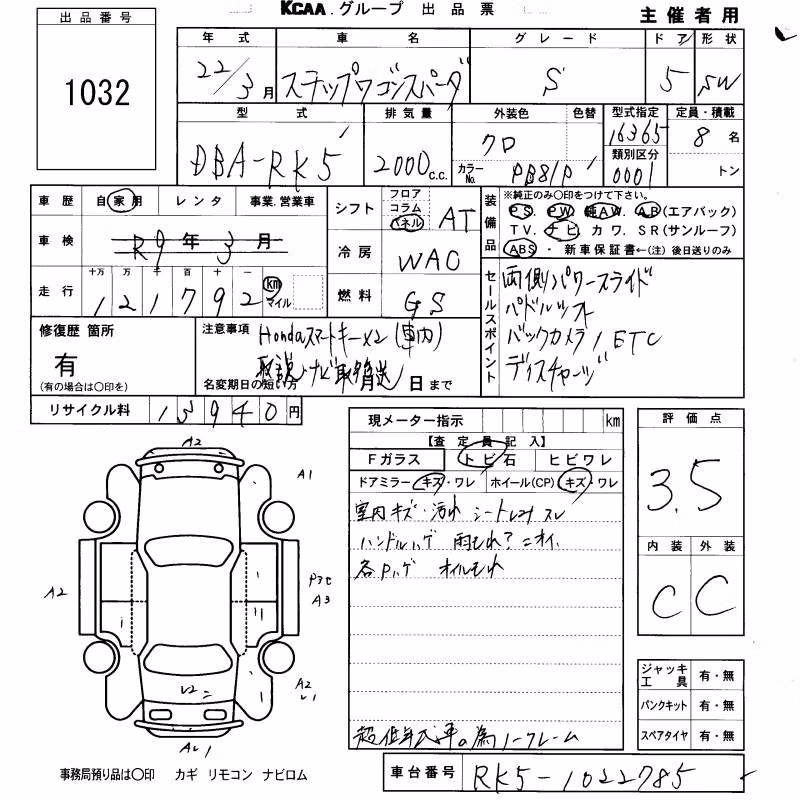 KCAA.グループ 出品票
主催者用
出品番号
1032
年式 車名 グレード ドア 形状
22/3月 ステップワゴンスパーダ S 5 SW
型式 排気量 外装色 色替 型式指定 定員・積載
DBA-RK5 2000c.c. クロ 16365 8名
カラーNo. PB81P 類別区分 0001 トン
車歴 自家用 レンタ 事業.営業車
車検 R9年3月
走行 十万 万 千 百 十 一
121792 km マイル
シフト フロア コラム パネル AT
冷房 WAC
燃料 GS
装備品 ※純正のみ〇印をつけて下さい。
PS. PW. 純AW. AB(エアバック)
TV. ナビ カワ. SR(サンルーフ)
ABS・新車保証書←(注)後日送りのみ
セールスポイント
両側パワースライド
パドルシフト
バックカメラ / ETC
ディスチャージ
修復歴 箇所
有
(有の場合は〇印を)
注意事項
Hondaスマートキー×2 (車内)
取説・ナビ取
名変期日の短い方 月 日まで
リサイクル料 13940円
現メーター指示 km
【査定員記入】
Fガラス トビ石 ヒビワレ
ドアミラー キズ・ワレ ホイール(CP) キズ・ワレ
室内キズ・汚れ シート スレ
ハンドルハゲ 雨もれ? ニオイ
各Pハゲ オイルもれ
超低年式車の為ノークレーム
評価点
3.5
内装 外装
C C
ジャッキ工具 有・無
パンクキット 有・無
スペアタイヤ 有・無
A2
A1
A2
A3
A2
事務局預り品は〇印 カギ リモコン ナビロム
車台番号 RK5-1022785